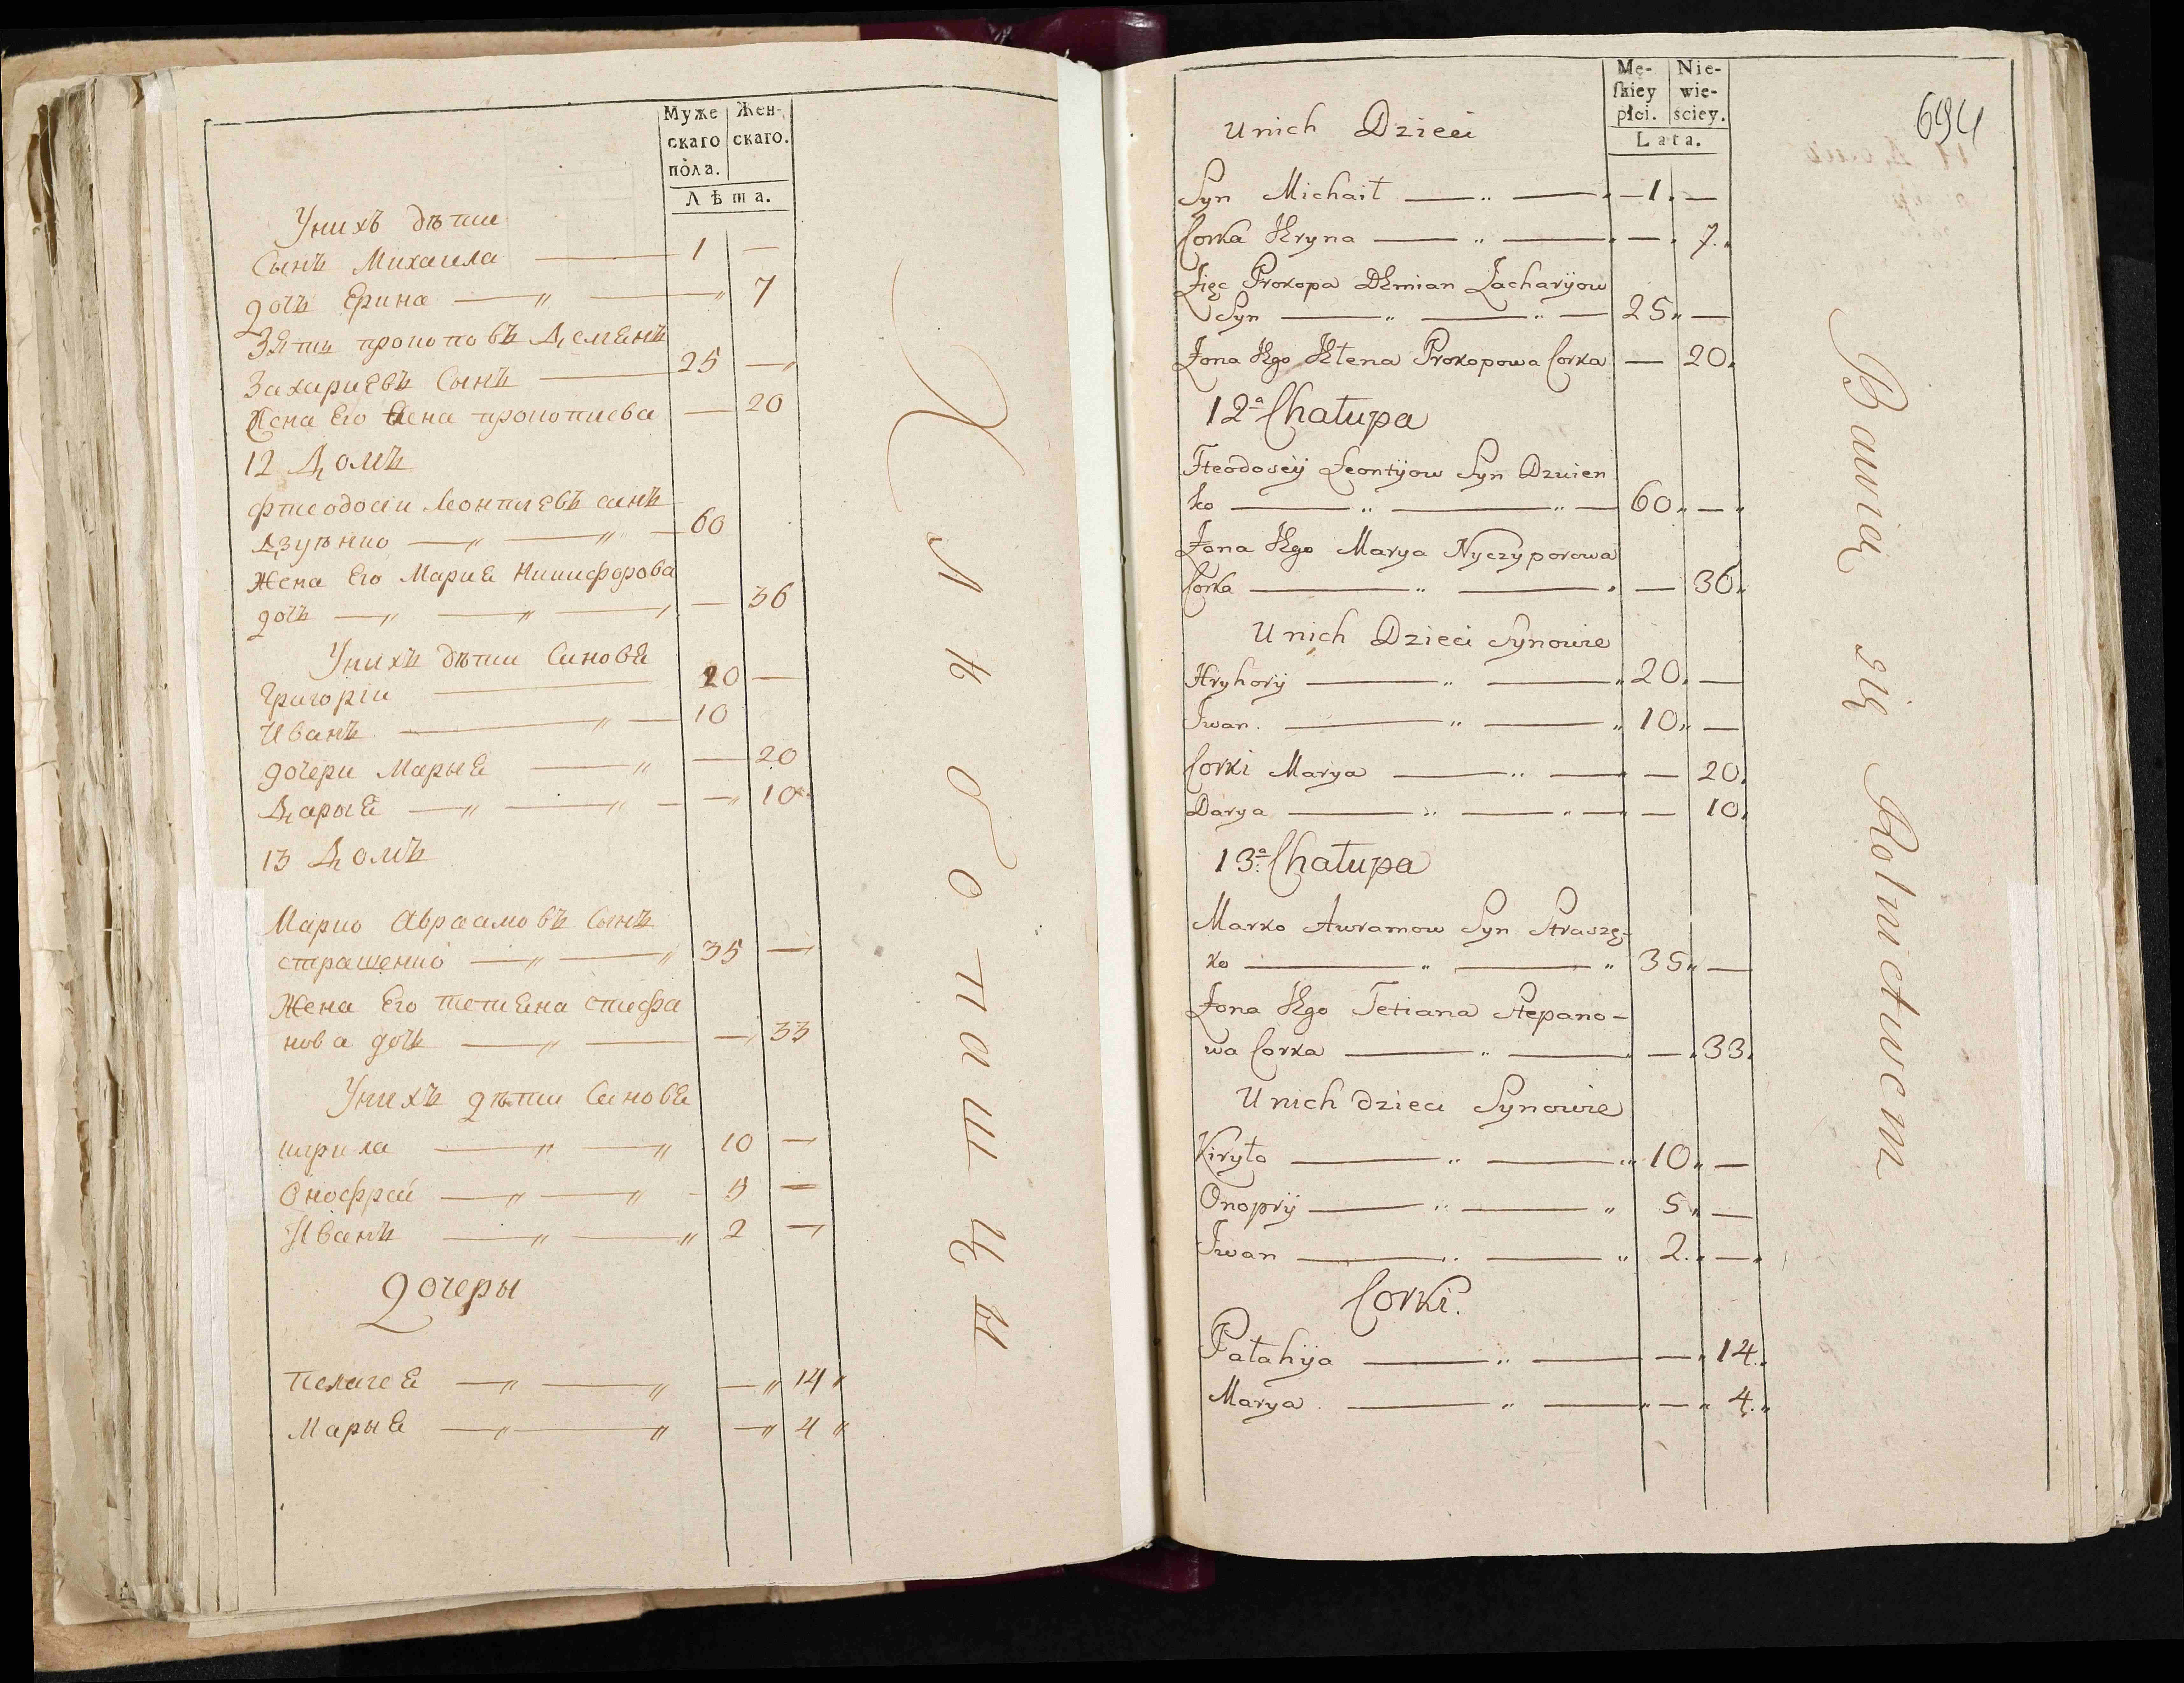 Муже
скаго
пола.
Жен-
скаго.
Лѣта.
Унихъ дѣти
Сынъ Михаила 1 —
дочь Ерина — „ — „ 7
Зять прокоповъ Демянъ
Захариевъ Сынъ 25 — „
Жена Его Елена прокопиева — 20
12 Домъ
Фтеодосiи Леонтиевъ синъ
Дзуѣнко — „ — „ — 60
Жена Его Мария Никифорова
дочь — „ — „ — 36
Унихъ дѣти Синовя
Григорiи 20 —
Иванъ — „ — 10
дочери Марыя — „ — 20
Дарыя — „ — „ — — „ 10
13 Домъ
Марко Авраамовъ Сынъ
страшенко — „ — „ 35 —
Жена Его тетяна стефа
нова дочь — „ — — „ 33
Унихъ дѣти Синовя
кирила — „ — „ 10 —
Онофрей — „ — „ 5 —
Иванъ — „ — „ 2 —
Дочеры
Пелагея — „ — „ — „ 14 „
Марыя — „ — „ — „ 4 „
Хлѣбопашцы
694
Mę-
ſkiey
płci.
Nie-
wie-
sciey.
Lata.
Unich Dzieci
Syn Michaił — „ — „ — 1 „ —
Corka Hryna — „ — „ — „ 7 „
Zięc Prokopa Demian Zacharyow
Syn — „ — „ — 25 „ —
Żona Jego Helena Prokopowa Corka — 20 „
12ª Chałupa
Fteodosÿ Leontÿow Syn Dzwien
ko — „ — „ — 60 „ — „
Żona Jego Marya Nyczyporowa
Corka — „ — „ — 36 „
Unich Dzieci Synowie
Hryhorÿ — „ — „ 20 „ —
Jwan. — „ — „ 10 „ —
Corki Marya — „ — — 20 „
Darya — „ — „ — — 10 „
13ª Chałupa
Marko Awramow Syn Straszę-
ko — „ — „ 35 „ —
Żona Jego Tetiana Stepano-
wa Corka — „ — „ — „ 33 „
Unich dzieci Synowie
Kiryło — „ — „ 10 „ —
Onoprÿ — „ — „ 5 „ —
Jwan — „ — „ 2. „ — „
Corki.
Pałahÿa — „ — — „ 14. „
Marya. — „ — „ — „ 4. „
Bawią się Rolnictwem